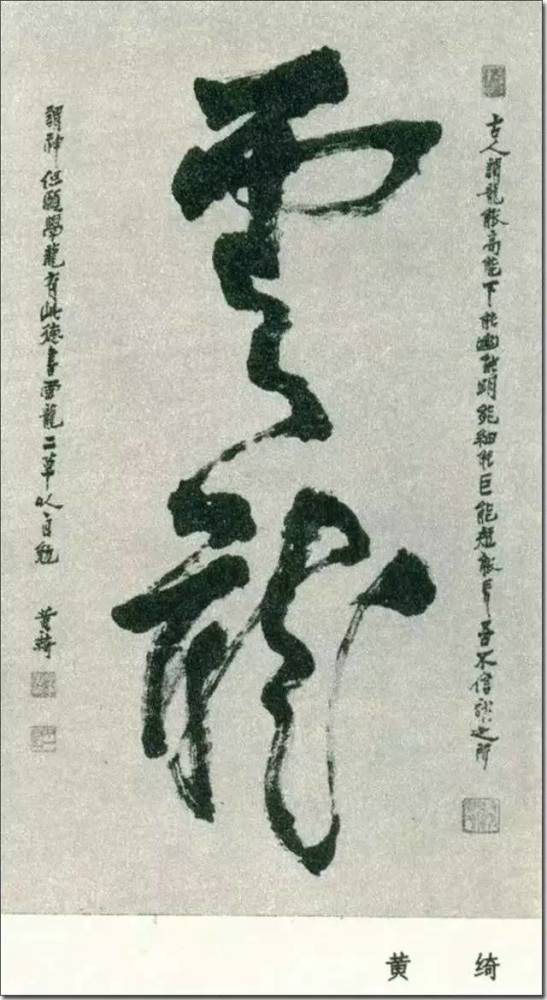 古人謂龍能高能下能幽能明能細能巨能短能長吾不信龍之所
雲龍
謂神但願學龍有此德書雲龍二草以自勉
黄綺
黄 绮